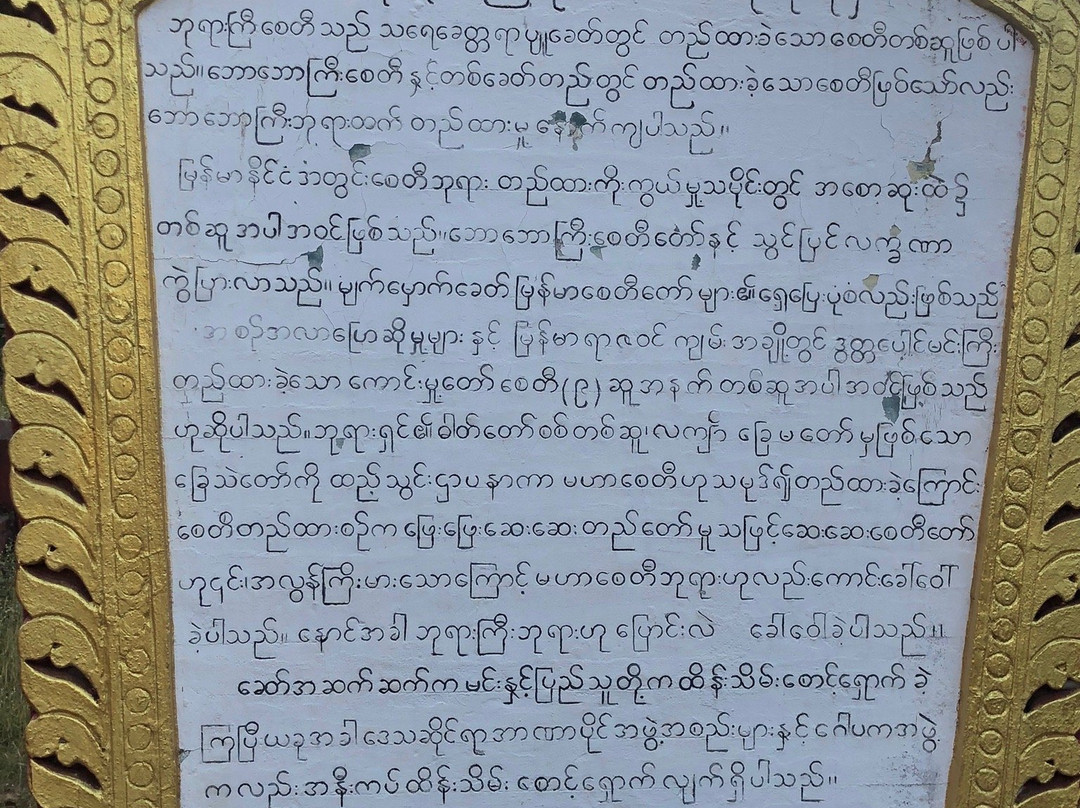 ဘုရားကြီးစေတီသည် သရေခေတ္တရာပျူခေတ်တွင် တည်ထားခဲ့သောစေတီတစ်ဆူဖြစ်ပါ
သည်။ဘောဘောကြီးစေတီ နှင့်တစ်ခေတ်တည်းတွင် တည်ထားခဲ့သောစေတီဖြစ်သော်လည်း
ဘောဘောကြီးဘုရားထက် တည်ထားမှု နောက်ကျပါသည်။
မြန်မာနိုင်ငံအတွင်းစေတီဘုရား တည်ထားကိုးကွယ်မှုသမိုင်းတွင် အစောဆုံးထဲ၌
တစ်ဆူအပါအဝင်ဖြစ်သည်။ဘောဘောကြီးစေတီတော်နှင့် သွင်ပြင်လက္ခဏာ
ကွဲပြားလာသည်။ မျက်မှောက်ခေတ်မြန်မာစေတီတော်များ၏ရှေ့ပြေးပုံစံလည်းဖြစ်သည်
အစဉ်အလာပြောဆိုမှုများ နှင့် မြန်မာရာဇဝင် ကျမ်းအချို့တွင် ဒွတ္တပေါင်မင်းကြီး
တည်ထားခဲ့သော ကောင်းမှုတော်စေတီ(၉)ဆူအနက် တစ်ဆူအပါအဝင်ဖြစ်သည်
ဟုဆိုပါသည်။ဘုရားရှင်၏ဓါတ်တော်စစ်တစ်ဆူ၊လက်ျာ ခြေမတော်မှဖြစ်သော
ခြေသဲတော်ကို ထည့်သွင်းဌာပနာကာ မဟာစေတီဟုသမုဒ်၍တည်ထားခဲ့ကြောင်း
စေတီတည်ထားစဉ်က ဖြေးဖြေးဆေးဆေးတည်တော်မူသဖြင့်ဆေးဆေးစေတီတော်
ဟု၎င်း၊အလွန်ကြီးမားသောကြောင့် မဟာစေတီဘုရားဟုလည်းကောင်းခေါ်ဝေါ်
ခဲ့ပါသည်။ နောင်အခါ ဘုရားကြီးဘုရားဟု ပြောင်းလဲ ခေါ်ဝေါ်ခဲ့ပါသည်။
ခေတ်အဆက်ဆက်က မင်းနှင့်ပြည်သူတို့က ထိန်းသိမ်းစောင့်ရှောက် ခဲ့
ကြပြီးယခုအခါ ဒေသဆိုင်ရာအာဏာပိုင်အဖွဲ့အစည်းများနှင့်ဂေါပကအဖွဲ့
ကလည်း အနီးကပ်ထိန်းသိမ်း စောင့်ရှောက် လျက်ရှိပါသည်။